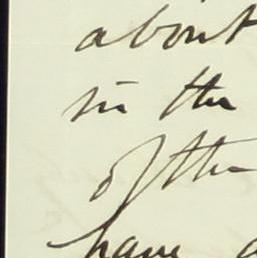 about
in the
of the
have a